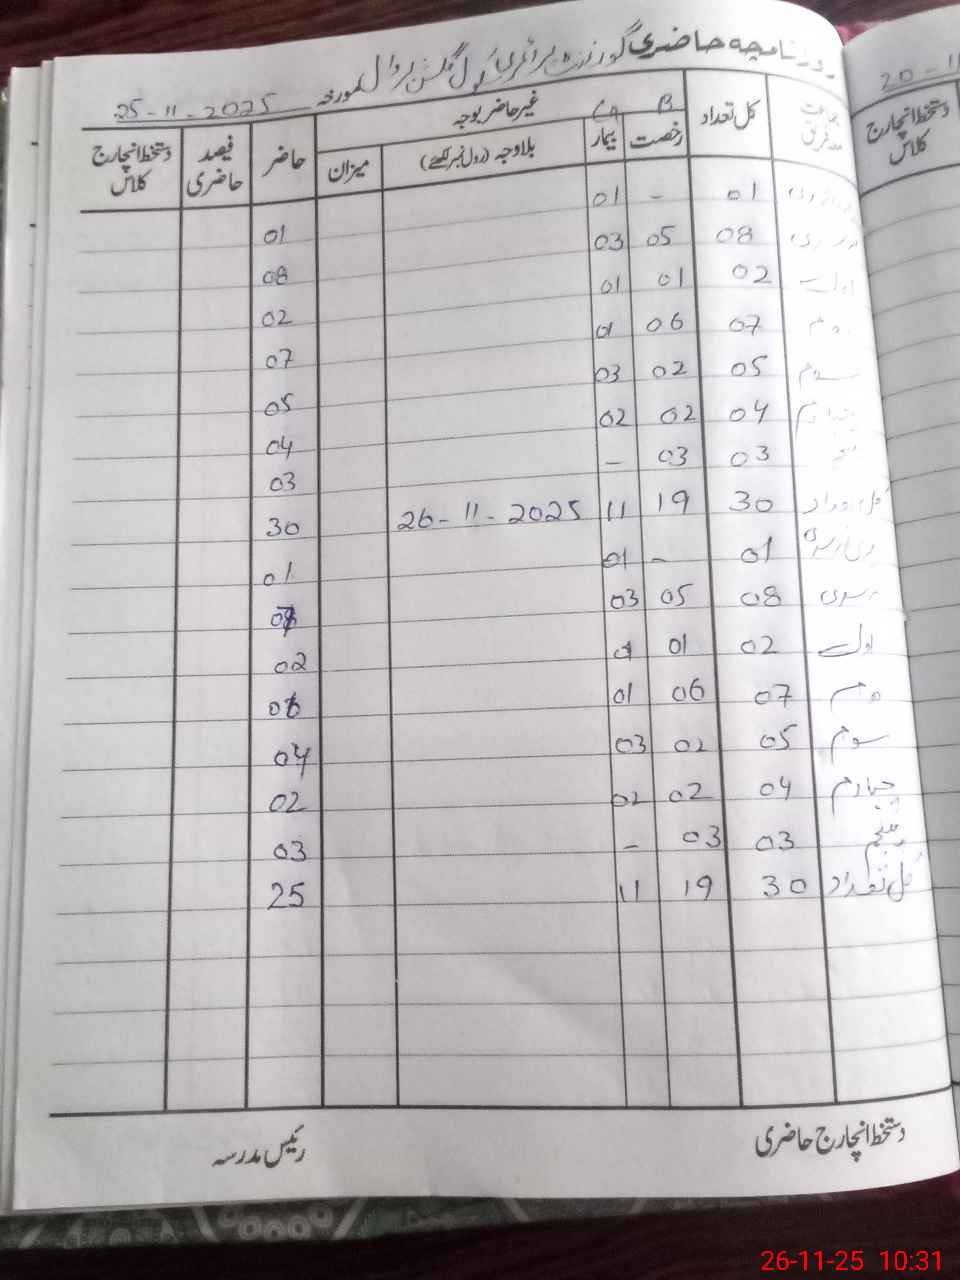 روزنامچہ حاضری گورنمنٹ پرائمری سکول گلشن بروال مورخہ 25-11-2025
جماعت مع فریق | کل تعداد | B رخصت | G بیمار | غیر حاضر بوجہ | بلاوجہ (رول نمبر لکھئے) | میزان | حاضر | فیصد حاضری | دستخط انچارج کلاس
01 - 01
08 05 03 01
اول 02 01 01 08
دوم 07 06 01 02
سوم 05 02 03 07
چہارم 04 02 02 05
پنجم 03 03 - 04
03
کل تعداد 30 19 11 26-11-2025 30
01 - 01 01
نرسری 08 05 03
اول 02 01 01 02
دوم 07 06 01
سوم 05 02 03 04
چہارم 04 02 02 02
پنجم 03 03 - 03
کل تعداد 30 19 11 25
دستخط انچارج حاضری
رئیس مدرسہ
20-11
دستخط انچارج کلاس
26-11-25 10:31